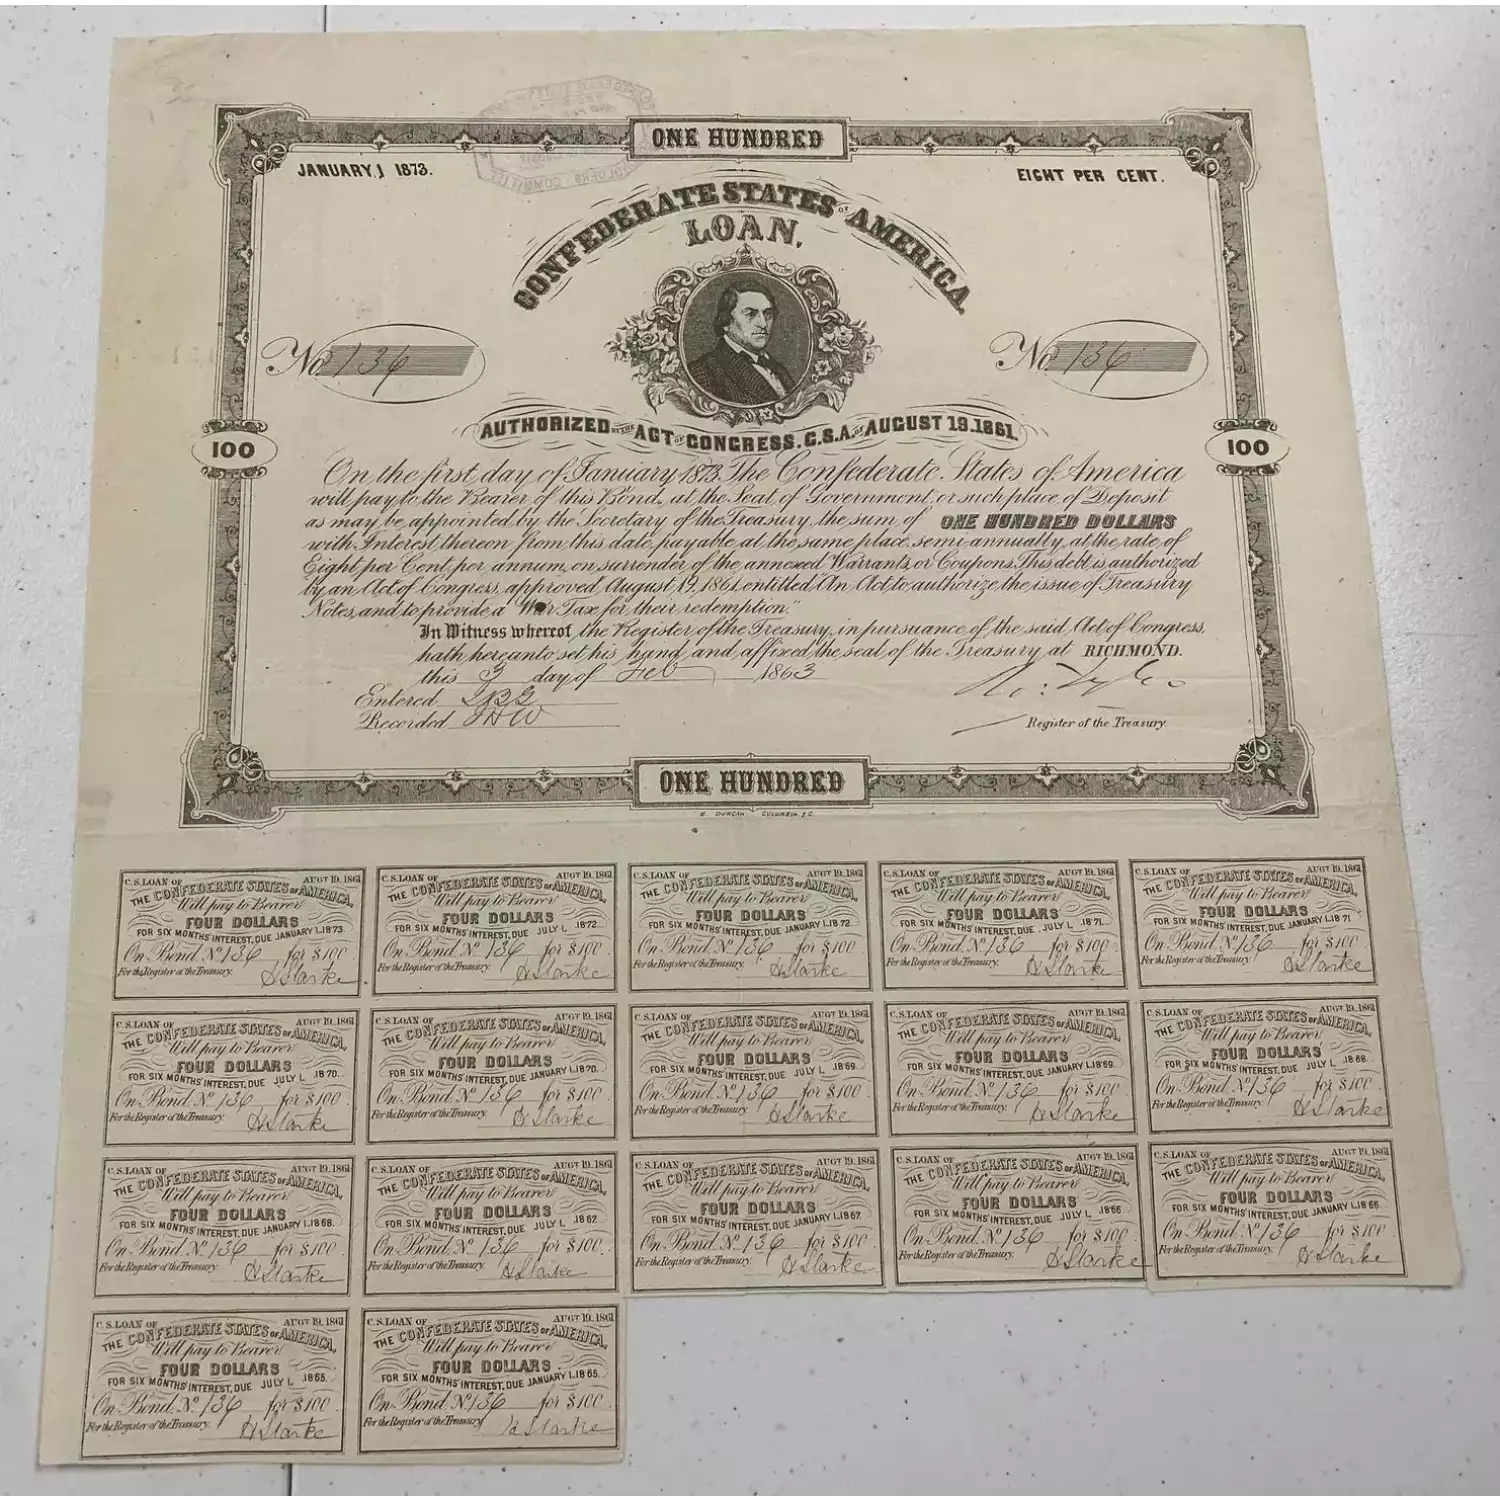 ONE HUNDRED
JANUARY,1 1873.
EIGHT PER CENT.
CONFEDERATE STATES OF AMERICA
LOAN,
No 136
No 136
AUTHORIZED BY THE ACT OF CONGRESS, C.S.A. OF AUGUST 19.1861.
100
100
On the first day of January 1873 The Confederate States of America
will pay to the Bearer of this Bond, at the Seat of Government, or such place of Deposit
as may be appointed by the Secretary of the Treasury, the sum of ONE HUNDRED DOLLARS
with Interest thereon from this date, payable at the same place, semi-annually, at the rate of
Eight per Cent, per annum, on surrender of the annexed Warrants, or Coupons. This debt is authorized
by an Act of Congress, approved, August, 19, 1861, entitled "An Act to authorize the issue of Treasury
Notes, and to provide a War Tax for their redemption."
In Witness whereof, the Register of the Treasury, in pursuance of the said Act of Congress,
hath hereunto set his hand, and affixed, the seal of the Treasury, at RICHMOND.
this 3 day of Feb 1863
Entered
Recorded
Register of the Treasury.
ONE HUNDRED
DUNCAN COLUMBIA S.C.
C.S. LOAN OF AUGT 19. 1861
THE CONFEDERATE STATES OF AMERICA,
Will pay to Bearer
FOUR DOLLARS
FOR SIX MONTHS' INTEREST, DUE JANUARY 1.1873.
On Bond No 136 for $100
For the Register of the Treasury.
C.S. LOAN OF AUGT 19. 1861
THE CONFEDERATE STATES OF AMERICA,
Will pay to Bearer
FOUR DOLLARS
FOR SIX MONTHS' INTEREST, DUE JULY 1. 1872.
On Bond No 136 for $100
For the Register of the Treasury.
C.S. LOAN OF AUGT 19. 1861
THE CONFEDERATE STATES OF AMERICA,
Will pay to Bearer
FOUR DOLLARS
FOR SIX MONTHS' INTEREST, DUE JANUARY 1.1872.
On Bond No 136 for $100
For the Register of the Treasury.
C.S. LOAN OF AUGT 19. 1861
THE CONFEDERATE STATES OF AMERICA,
Will pay to Bearer
FOUR DOLLARS
FOR SIX MONTHS' INTEREST, DUE JULY 1. 1871.
On Bond No 136 for $100
For the Register of the Treasury.
C.S. LOAN OF AUGT 19. 1861
THE CONFEDERATE STATES OF AMERICA,
Will pay to Bearer
FOUR DOLLARS
FOR SIX MONTHS' INTEREST, DUE JANUARY 1.1871.
On Bond No 136 for $100
For the Register of the Treasury.
C.S. LOAN OF AUGT 19. 1861
THE CONFEDERATE STATES OF AMERICA,
Will pay to Bearer
FOUR DOLLARS
FOR SIX MONTHS' INTEREST, DUE JULY 1. 1870.
On Bond No 136 for $100
For the Register of the Treasury.
C.S. LOAN OF AUGT 19. 1861
THE CONFEDERATE STATES OF AMERICA,
Will pay to Bearer
FOUR DOLLARS
FOR SIX MONTHS' INTEREST, DUE JANUARY 1.1870.
On Bond No 136 for $100
For the Register of the Treasury.
C.S. LOAN OF AUGT 19. 1861
THE CONFEDERATE STATES OF AMERICA,
Will pay to Bearer
FOUR DOLLARS
FOR SIX MONTHS' INTEREST, DUE JULY 1. 1869.
On Bond No 136 for $100
For the Register of the Treasury.
C.S. LOAN OF AUGT 19. 1861
THE CONFEDERATE STATES OF AMERICA,
Will pay to Bearer
FOUR DOLLARS
FOR SIX MONTHS' INTEREST, DUE JANUARY 1.1869.
On Bond No 136 for $100
For the Register of the Treasury.
C.S. LOAN OF AUGT 19. 1861
THE CONFEDERATE STATES OF AMERICA,
Will pay to Bearer
FOUR DOLLARS
FOR SIX MONTHS' INTEREST, DUE JULY 1. 1868.
On Bond No 136 for $100
For the Register of the Treasury.
C.S. LOAN OF AUGT 19. 1861
THE CONFEDERATE STATES OF AMERICA,
Will pay to Bearer
FOUR DOLLARS
FOR SIX MONTHS' INTEREST, DUE JANUARY 1.1868.
On Bond No 136 for $100
For the Register of the Treasury.
C.S. LOAN OF AUGT 19. 1861
THE CONFEDERATE STATES OF AMERICA,
Will pay to Bearer
FOUR DOLLARS
FOR SIX MONTHS' INTEREST, DUE JULY 1. 1867.
On Bond No 136 for $100
For the Register of the Treasury.
C.S. LOAN OF AUGT 19. 1861
THE CONFEDERATE STATES OF AMERICA,
Will pay to Bearer
FOUR DOLLARS
FOR SIX MONTHS' INTEREST, DUE JANUARY 1.1867.
On Bond No 136 for $100
For the Register of the Treasury.
C.S. LOAN OF AUGT 19. 1861
THE CONFEDERATE STATES OF AMERICA,
Will pay to Bearer
FOUR DOLLARS
FOR SIX MONTHS' INTEREST, DUE JULY 1. 1866.
On Bond No 136 for $100
For the Register of the Treasury.
C.S. LOAN OF AUGT 19. 1861
THE CONFEDERATE STATES OF AMERICA,
Will pay to Bearer
FOUR DOLLARS
FOR SIX MONTHS' INTEREST, DUE JANUARY 1.1866.
On Bond No 136 for $100
For the Register of the Treasury.
C.S. LOAN OF AUGT 19. 1861
THE CONFEDERATE STATES OF AMERICA,
Will pay to Bearer
FOUR DOLLARS
FOR SIX MONTHS' INTEREST, DUE JULY 1. 1865.
On Bond No 136 for $100
For the Register of the Treasury.
C.S. LOAN OF AUGT 19. 1861
THE CONFEDERATE STATES OF AMERICA,
Will pay to Bearer
FOUR DOLLARS
FOR SIX MONTHS' INTEREST, DUE JANUARY 1.1865.
On Bond No 136 for $100
For the Register of the Treasury.